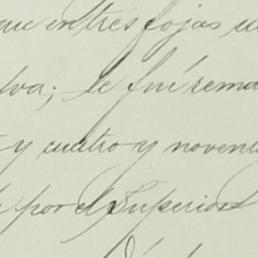 que en tres fojas u
lva; le fué rema
y cuatro y novent
por el Superior